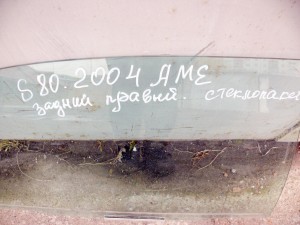 S80.2004 AME
задний правый. стеклопакет